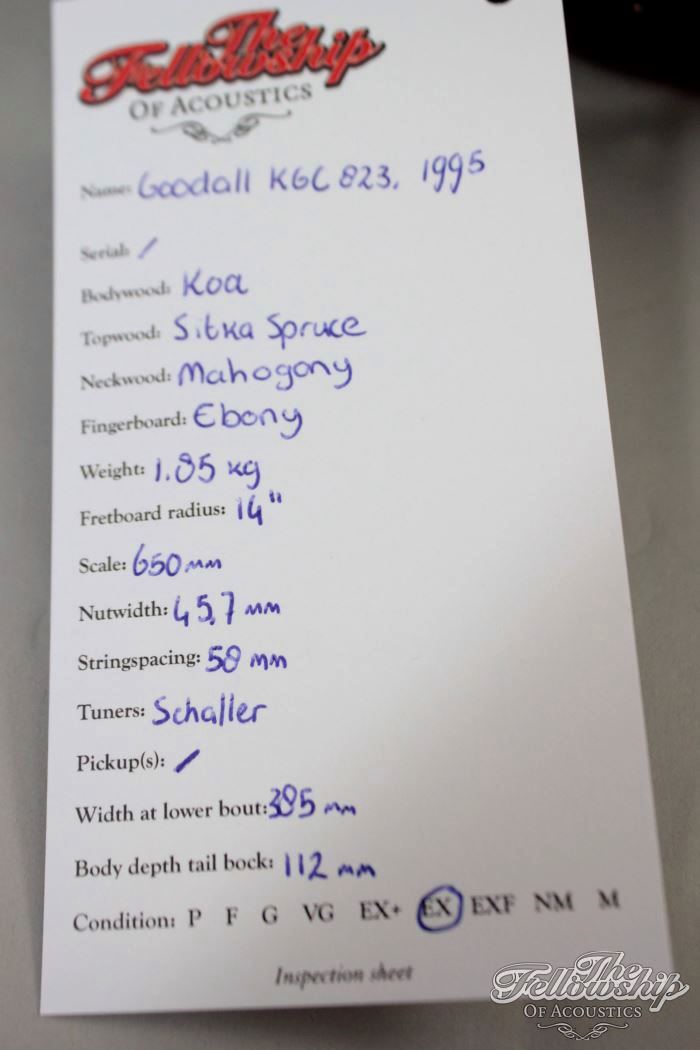 The
Fellowship
OF ACOUSTICS
Name: Goodall KGC 823. 1995
Serial: /
Bodywood: Koa
Topwood: Sitka Spruce
Neckwood: Mahogony
Fingerboard: Ebony
Weight: 1.85 kg
Fretboard radius: 14"
Scale: 650 mm
Nutwidth: 45,7 mm
Stringspacing: 58 mm
Tuners: Schaller
Pickup(s): /
Width at lower bout: 385 mm
Body depth tail bock: 112 mm
Condition: P F G VG EX+ EX EXF NM M
Inspection sheet
The
Fellowship
OF ACOUSTICS